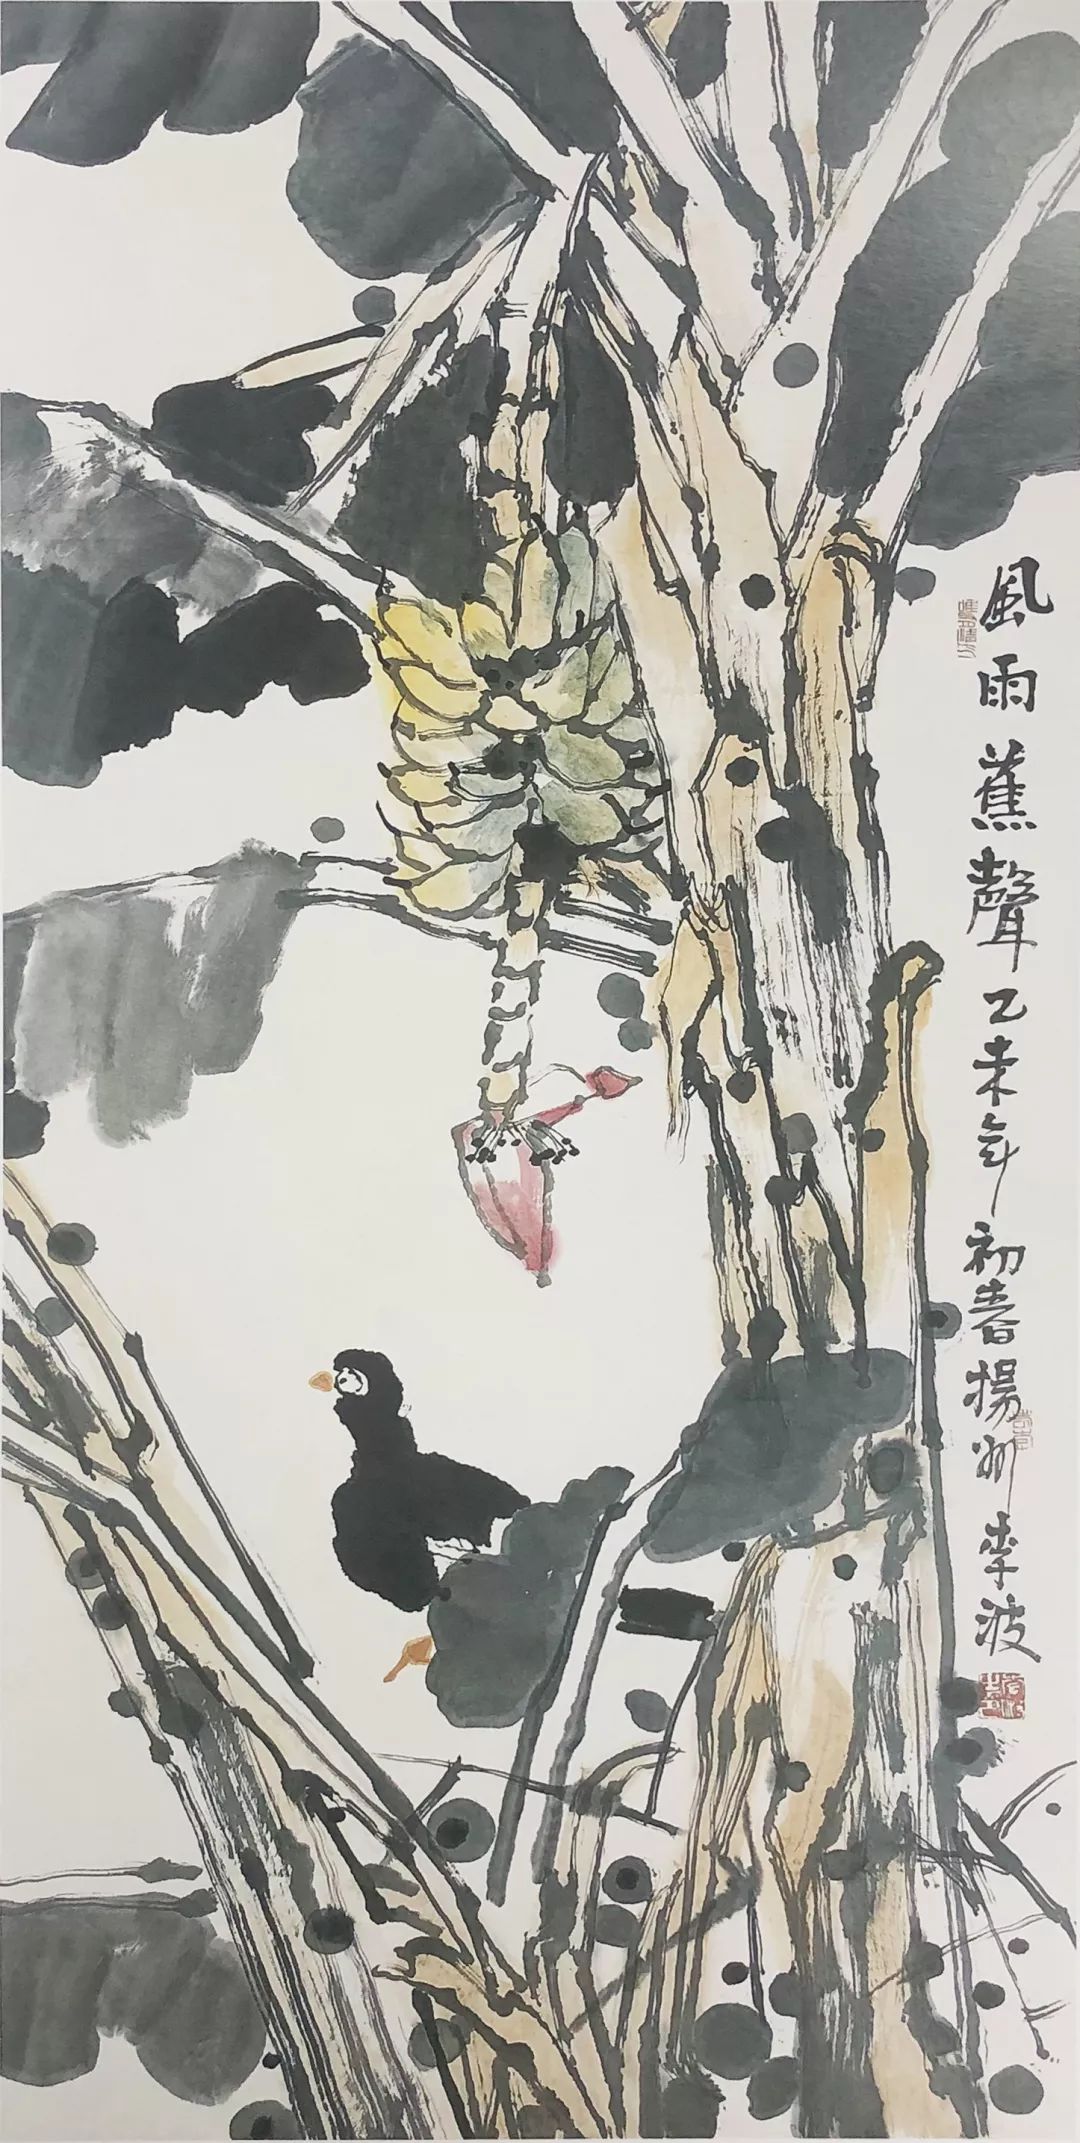 風雨蕉聲乙未年初春揚州李波